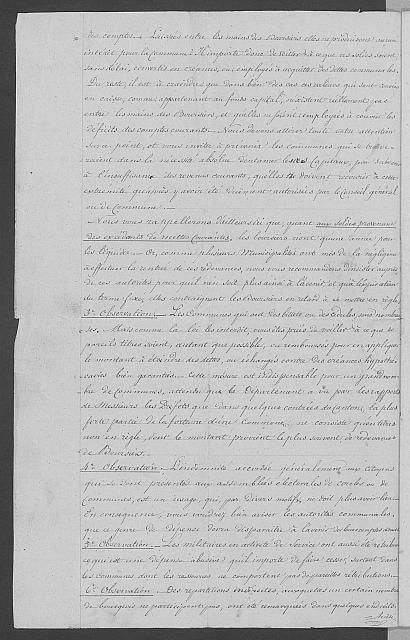 des comptes. Laissés entre les mains des Boursiers elles ne produisent aucun
intérêt pour la Commune. Il importe donc de veiller à ce que ces soldes soient
sans délai, convertis en créances, ou employés à acquitter des dettes communales.
Du reste, il est à craindre que dans bien des cas ces valeurs qui sont
en caisse, comme appartenant au fonds capital, n'existent réellement pas
entre les mains des Boursiers, et qu'elles ne soient employées à couvrir les
déficits des comptes courants. Nous devons attirer toute votre attention
sur ce point, et vous inviter à prévenir les communes qui se trouveraient
dans la nécessité absolue d'entamer les Capitaux, pour subvenir
à l'insuffisance des revenus courants, qu'elles ne doivent recourir à cette
extrémité qu'après y avoir été dûment autorisées par le Conseil général
ou de Commune.
Nous vous rappellerons d'ailleurs ici que, quant aux soldes provenant
des excédants de recettes courantes, les boursiers n'ont qu'une année pour
les liquider. Or comme plusieurs Municipalités ont mis de la négligence
à effectuer la rentrée de ces redevances, nous vous recommandons d'insister auprès
de ces autorités pour qu'il n'en soit plus ainsi à l'avenir et qu'à l'expiration
du terme fixé, elles contraignent les Boursiers en retard à se mettre en règle.
3e Observation. Les Communes qui ont des titres ou des cédules sont nombreuses.
Mais comme la loi les interdit, vous êtes priés de veiller à ce que
pareils titres soient, autant que possible, ou remboursés pour en appliquer
le montant à éteindre des dettes, ou échangés contre des créances hypothécaires
bien garanties. Cette mesure est indispensable pour un grand nombre
de Communes, attendu que le Département a vu par les rapports
de Messieurs les Préfets que dans quelques contrées du canton, la plus
forte partie de la fortune d'une Commune, ne consiste qu'en titres
non en règle, dont le montant provient le plus souvent de redevances
de Boursiers.
4e Observation. L'indemnité accordée généralement aux citoyens
qui se sont présentés aux assemblées électorales de cercles ou de
Communes, est un usage, qui, par divers motifs, ne doit plus avoir lieu.
En conséquence, vous voudrez bien aviser les autorités communales,
que ce genre de dépense devra disparaître à l'avenir des
5e Observation. Les militaires en activité de service ont aussi été rétribués
ce qui est une dépense abusive qu'il importe de faire cesser, surtout dans
les Communes dont les ressources ne comportent pas de pareilles rétributions.
6e Observation. Des répartitions indirectes, auxquelles un certain nombre
de bourgeois ne participent pas, ont été remarquées dans quelques endroits.